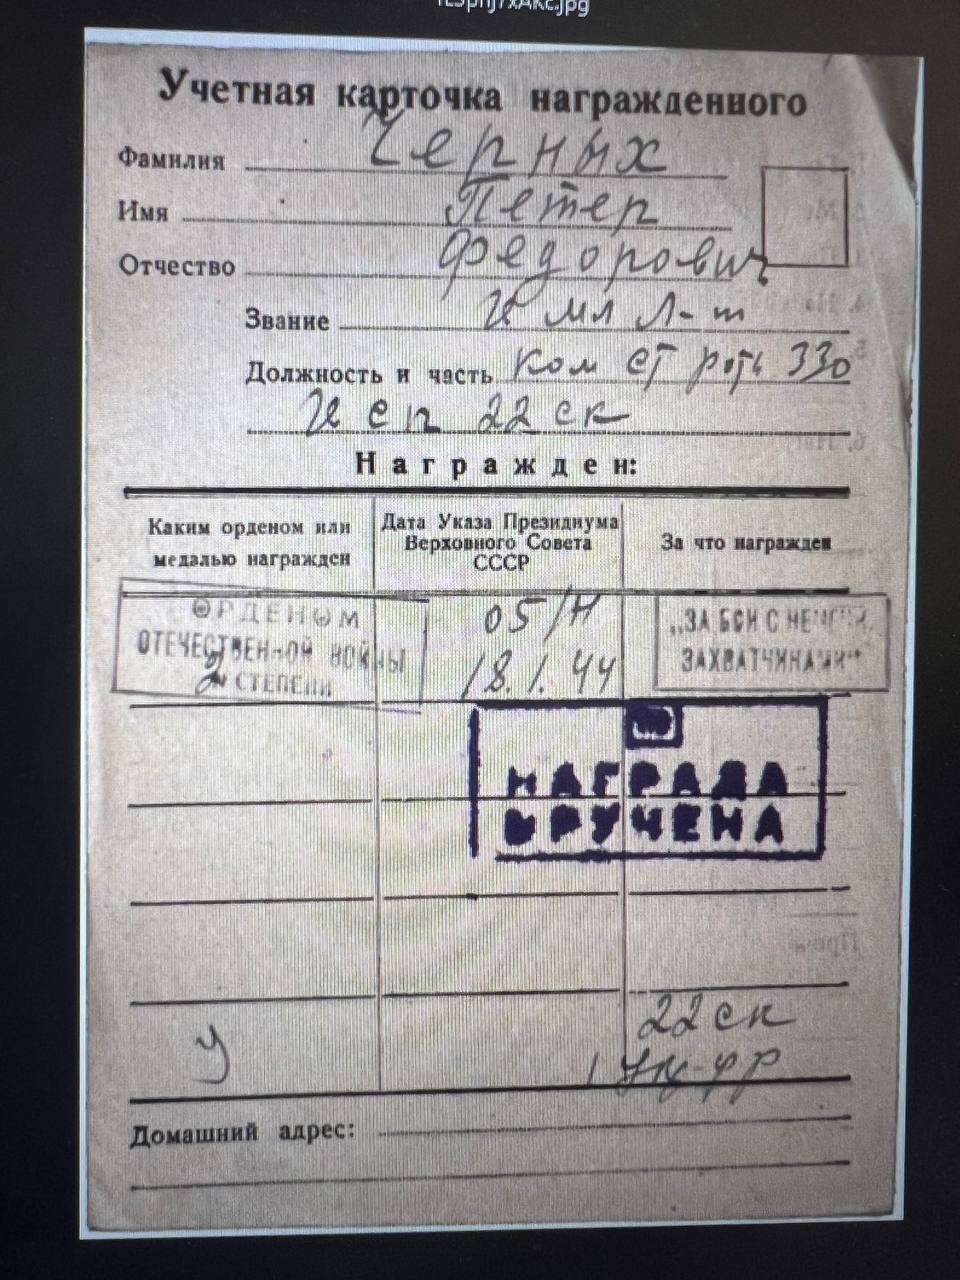 Учетная карточка награжденного
Фамилия Черных
Имя Петер
Отчество Федорович
Звание мл л-т
Должность и часть ком ст роты 330
сп 22 ск
Награжден:
Каким орденом или медалью награжден
Дата Указа Президиума Верховного Совета СССР
За что награжден
ОРДЕНОМ
ОТЕЧЕСТВЕННОЙ ВОЙНЫ
2 СТЕПЕНИ
05/н
18.1.44
„ЗА БОИ С
ЗАХВАТЧИКАМИ"
НАГРАДА
ВРУЧЕНА
22 ск
У
1 Укр фр
Домашний адрес: